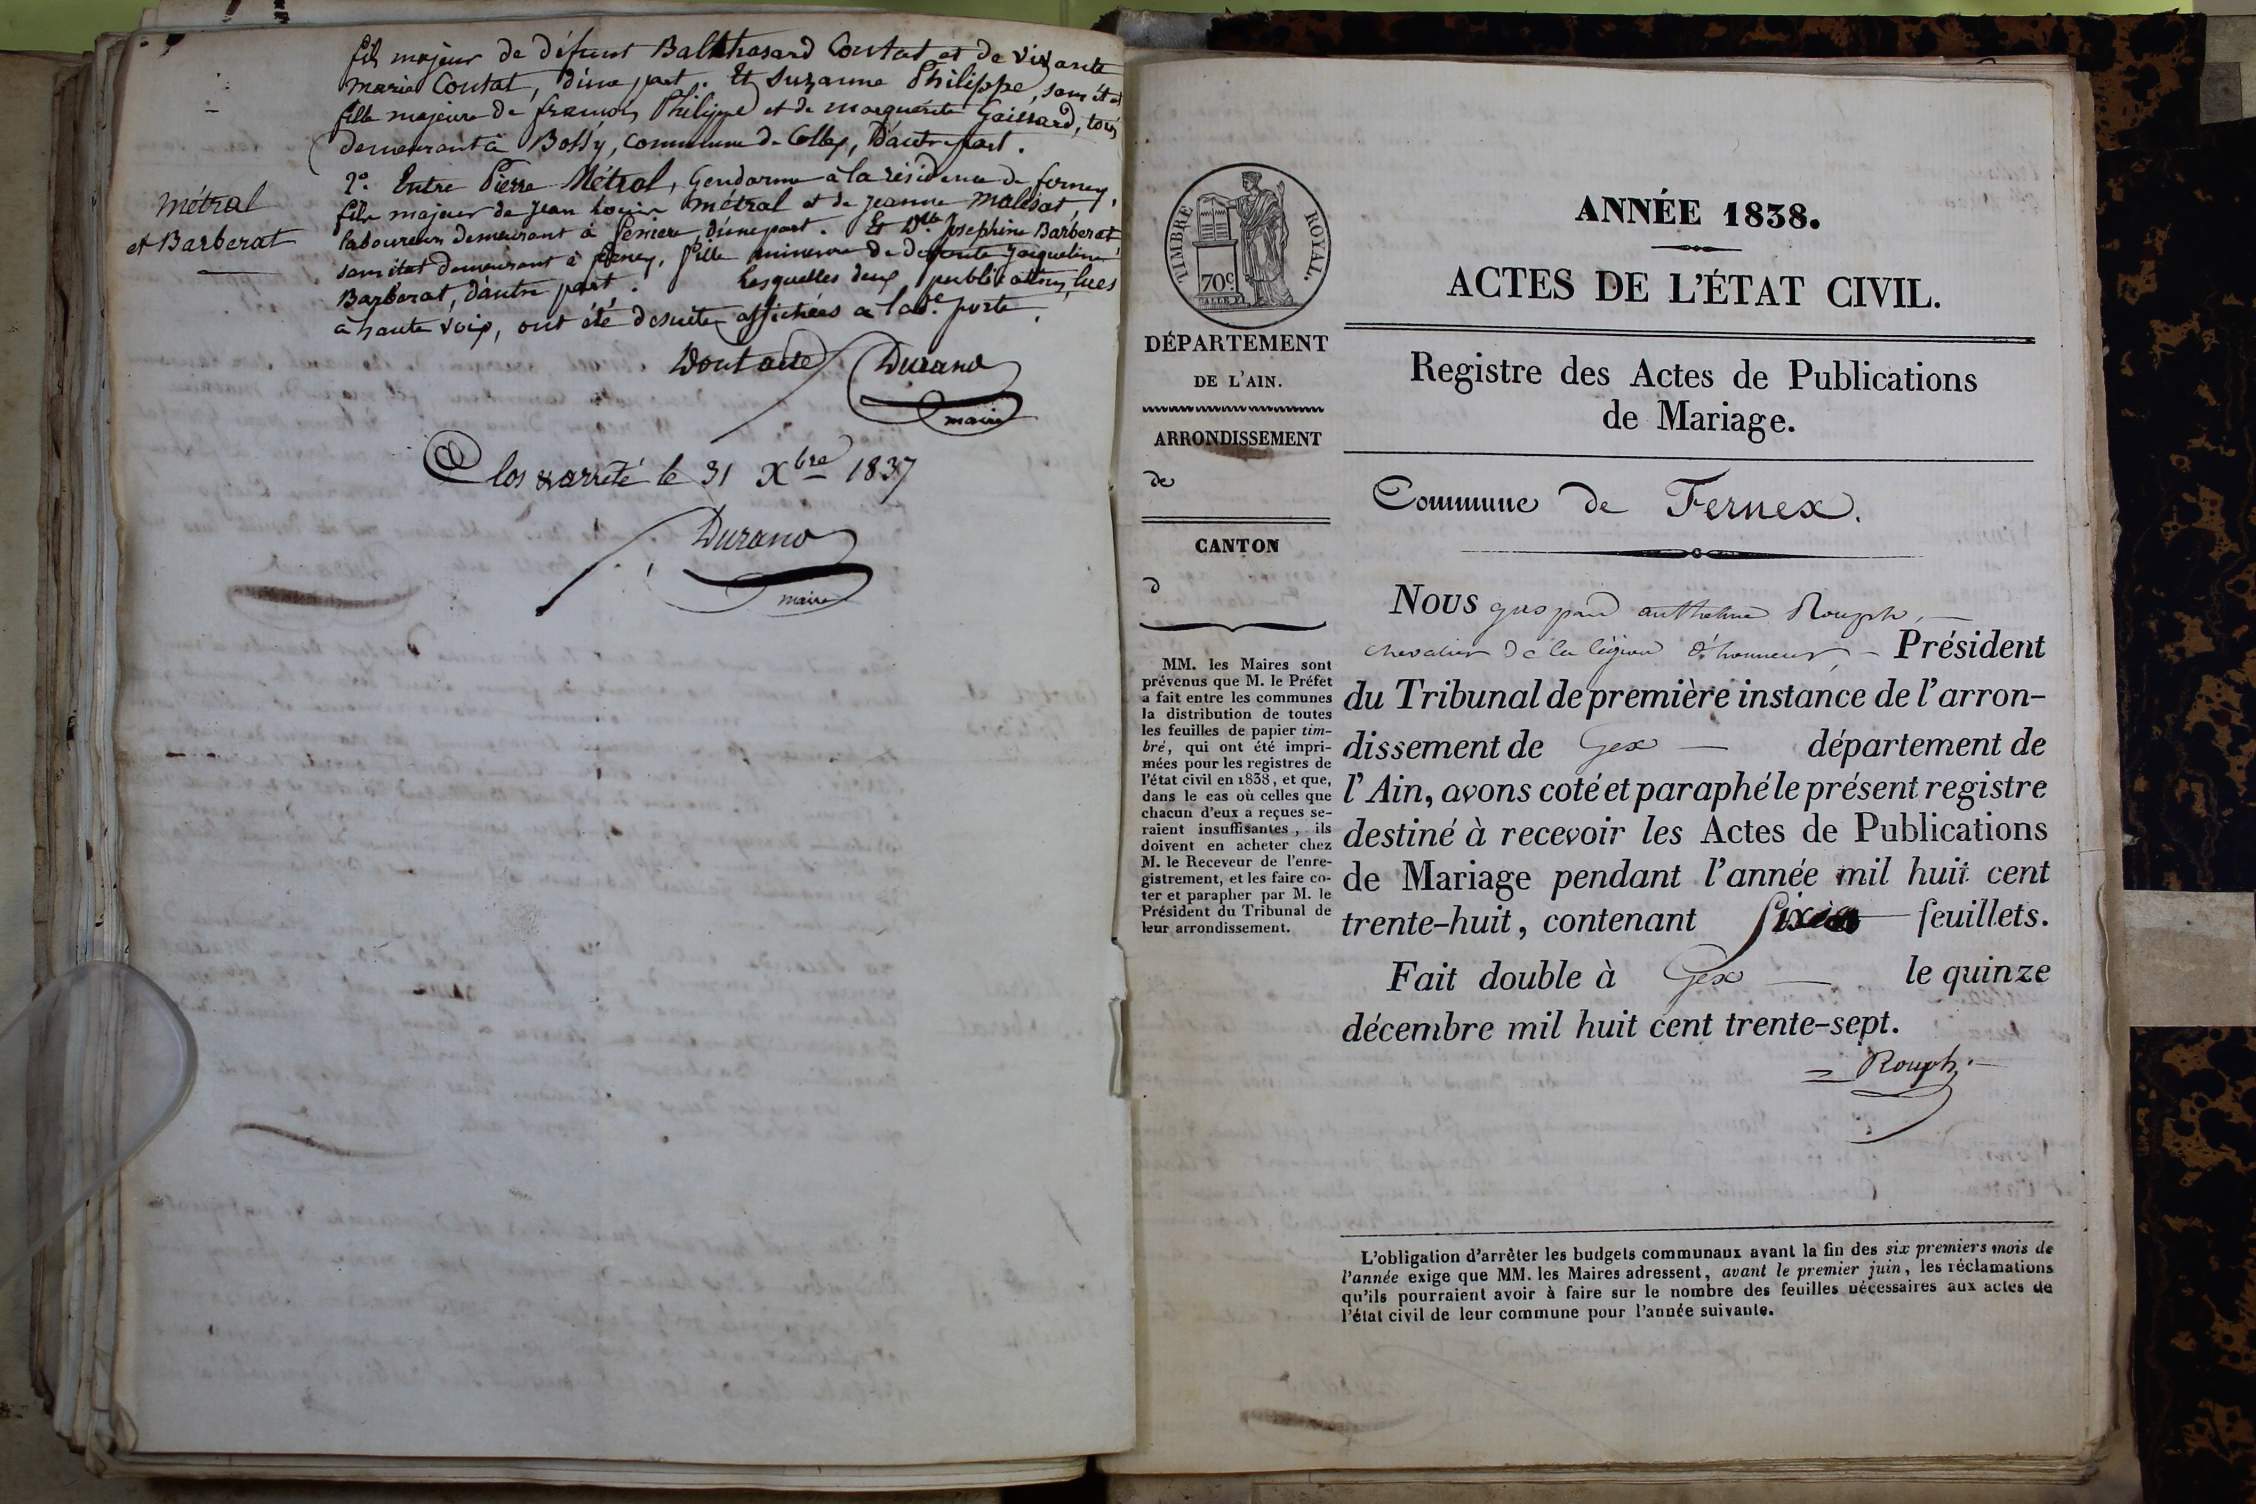 fils majeur de défunt Balthasard Contat et de vivante
marie Contat, d'une part. Et Suzanne Philippe, sans état
fille majeure de françois Philippe et de marguerite Gaissard, tous
demeurant à Bossy, commune de Collex, D'autre part.
Métral
et Barberat
2º. Entre Pierre Métral, Gendarme à la résidence de ferney,
fils majeur de jean Louis métral et de jeanne
laboureurs demeurant à d'une part. Et Dlle Josephine Barberat
sans état demeurant à ferney, fille mineure de défunte jaqueline
Barberat, d'autre part. Lesquelles deux publications, lues
à haute voix, ont été desuite affichées a lade. porte.
Dont acte Durand
maire
Clos & arrêté le 31 Xbre 1837
Durand
maire
TIMBRE ROYAL.
70c
DÉPARTEMENT
DE L'AIN.
ARRONDISSEMENT
de
CANTON
d
MM. les Maires sont
prévenus que M. le Préfet
a fait entre les communes
la distribution de toutes
les feuilles de papier tim-
bré, qui ont été impri-
mées pour les registres de
l'état civil en 1838, et que,
dans le cas où celles que
chacun d'eux a reçues se-
raient insuffisantes, ils
doivent en acheter chez
M. le Receveur de l'enre-
gistrement, et les faire co-
ter et parapher par M. le
Président du Tribunal de
leur arrondissement.
ANNÉE 1838.
ACTES DE L'ÉTAT CIVIL.
Registre des Actes de Publications
de Mariage.
Commune de Fernex.
Nous gaspard anthelme Rouph,
chevalier de la légion d'honneur, Président
du Tribunal de première instance de l'arron-
dissement de Gex département de
l'Ain, avons coté et paraphé le présent registre
destiné à recevoir les Actes de Publications
de Mariage pendant l'année mil huit cent
trente-huit, contenant six feuillets.
Fait double à Gex le quinze
décembre mil huit cent trente-sept.
Rouph.
L'obligation d'arrêter les budgets communaux avant la fin des six premiers mois de
l'année exige que MM. les Maires adressent, avant le premier juin, les réclamations
qu'ils pourraient avoir à faire sur le nombre des feuilles nécessaires aux actes de
l'état civil de leur commune pour l'année suivante.